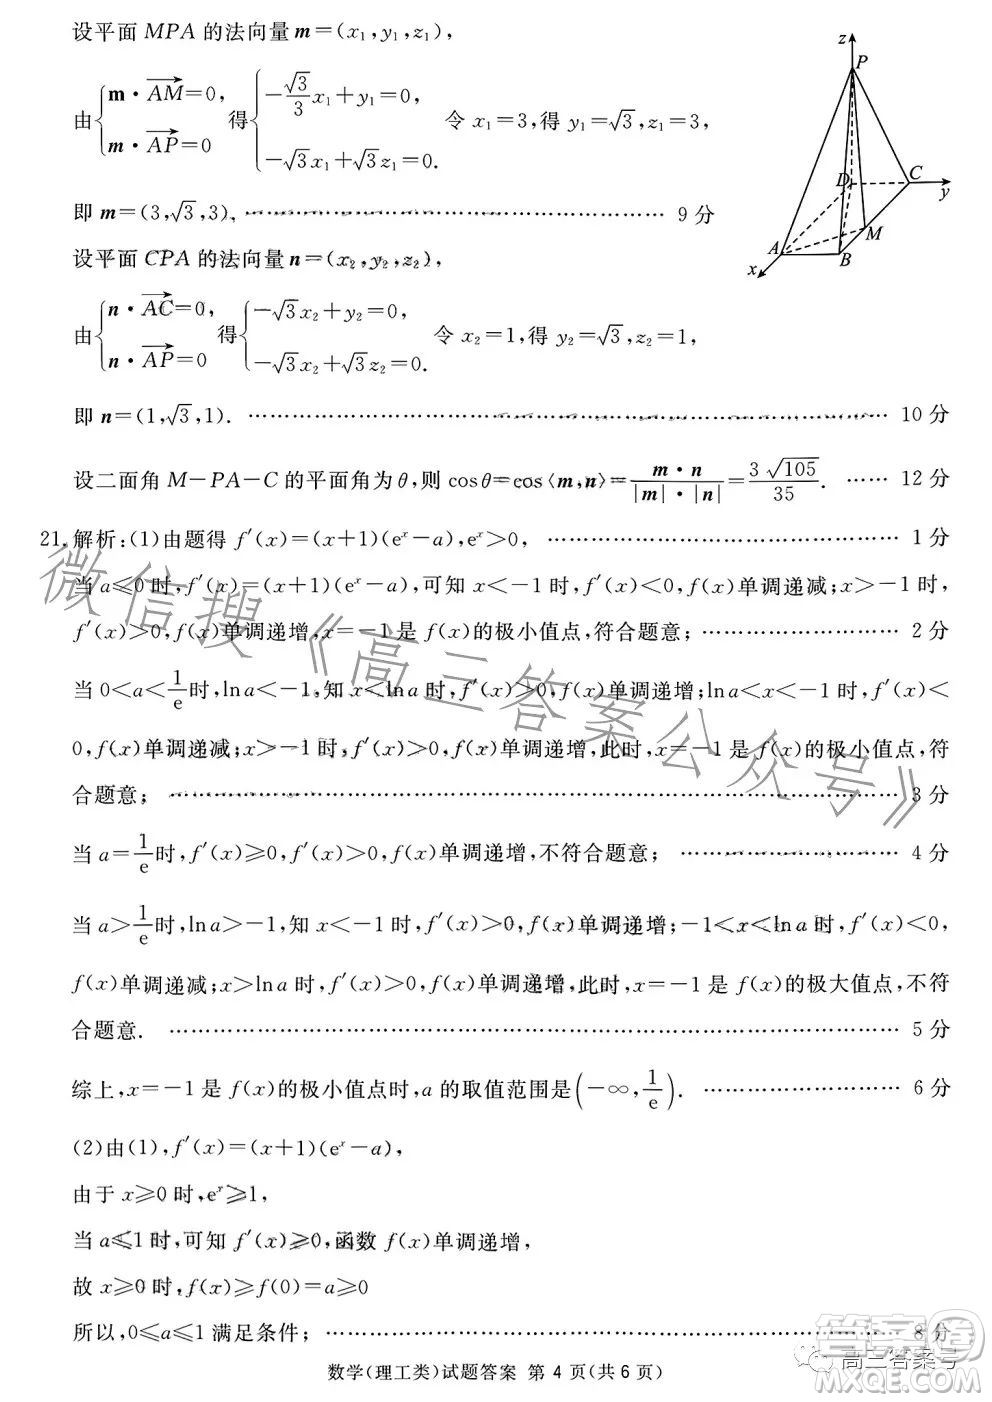 设平面 MPA 的法向量 m=(x₁,y₁,z₁),
由{m·AM⃗=0, m·AP⃗=0 得{-(√3/3)x₁+y₁=0, -√3x₁+√3z₁=0. 令 x₁=3,得 y₁=√3,z₁=3,
即 m=(3,√3,3), …… 9 分
设平面 CPA 的法向量 n=(x₂,y₂,z₂),
由{n·AC⃗=0, n·AP⃗=0 得{-√3x₂+y₂=0, -√3x₂+√3z₂=0. 令 x₂=1,得 y₂=√3,z₂=1,
即 n=(1,√3,1). …… 10 分
设二面角 M-PA-C 的平面角为 θ,则 cosθ=cos⟨m,n⟩=(m·n)/(|m|·|n|)=3√105/35. …… 12 分
z
P
D
C
y
A
M
B
x
21.解析:(1)由题得 f′(x)=(x+1)(eˣ-a),eˣ>0, …… 1 分
当 a≤0 时,f′(x)=(x+1)(eˣ-a),可知 x<-1 时,f′(x)<0,f(x)单调递减;x>-1 时,
f′(x)>0,f(x)单调递增,x=-1 是 f(x)的极小值点,符合题意; …… 2 分
当 0<a<1/e时,lna<-1,知 x<lna时,f′(x)>0,f(x)单调递增;lna<x<-1 时,f′(x)<
0,f(x)单调递减;x>-1 时,f′(x)>0,f(x)单调递增,此时,x=-1 是 f(x)的极小值点,符
合题意; …… 3 分
当 a=1/e时,f′(x)≥0,f′(x)>0,f(x)单调递增,不符合题意; …… 4 分
当 a>1/e时,lna>-1,知 x<-1 时,f′(x)>0,f(x)单调递增;-1<x<lna 时,f′(x)<0,
f(x)单调递减;x>lna 时,f′(x)>0,f(x)单调递增,此时,x=-1 是 f(x)的极大值点,不符
合题意. …… 5 分
综上,x=-1 是 f(x)的极小值点时,a 的取值范围是(-∞,1/e). …… 6 分
(2)由(1),f′(x)=(x+1)(eˣ-a),
由于 x≥0 时,eˣ≥1,
当 a≤1 时,可知 f′(x)≥0,函数 f(x)单调递增,
故 x≥0 时,f(x)≥f(0)=a≥0
所以,0≤a≤1 满足条件; …… 8 分
数学(理工类)试题答案 第 4 页(共 6 页)
微信搜《高三答案公众号》
答案圈
高三答案号
MXQE.COM